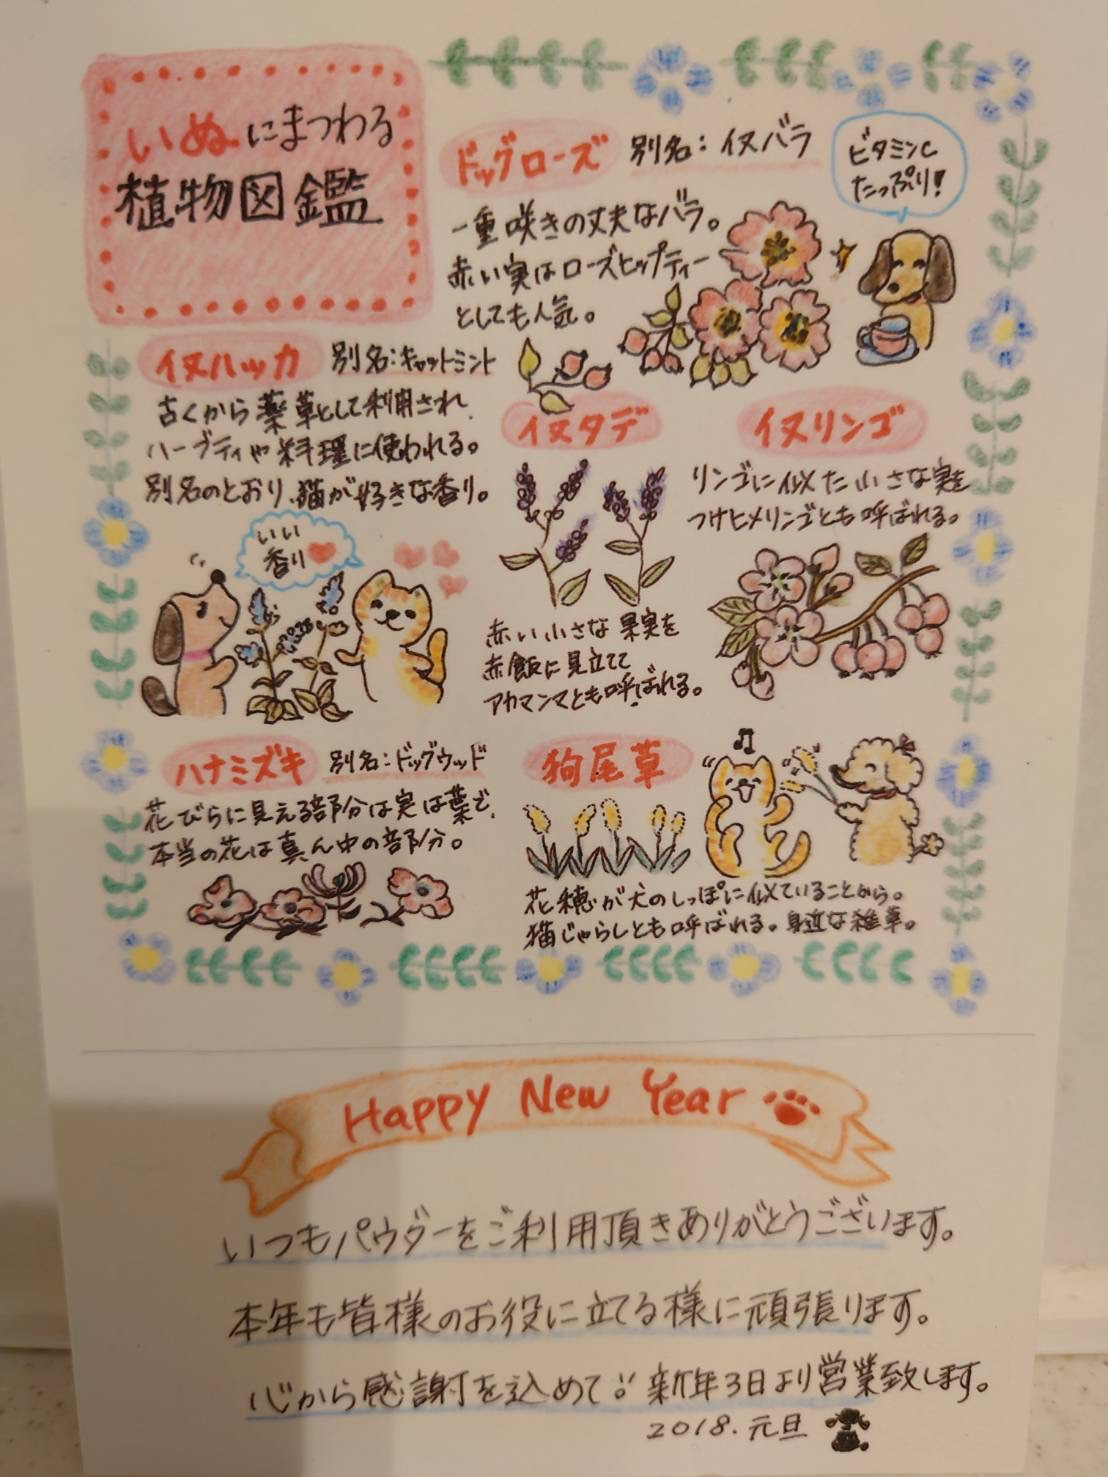 いぬにまつわる
植物図鑑
ドッグローズ 別名：イヌバラ
一重咲きの丈夫なバラ。
赤い実はローズヒップティー
としても人気。
ビタミンC
たっぷり!
イヌハッカ 別名：キャットミント
古くから薬草として利用され、
ハーブティや料理に使われる。
別名のとおり、猫が好きな香り。
いい
香り
イヌタデ
赤い小さな果実を
赤飯に見立てて
アカマンマとも呼ばれる。
イヌリンゴ
リンゴに似た小さな実を
つけヒメリンゴとも呼ばれる。
ハナミズキ 別名：ドッグウッド
花びらに見える部分は実は葉で、
本当の花は真ん中の部分。
狗尾草
花穂が犬のしっぽに似ていることから。
猫じゃらしとも呼ばれる。身近な雑草。
Happy New Year
いつもパウダーをご利用頂きありがとうございます。
本年も皆様のお役に立てる様に頑張ります。
心から感謝を込めて 新年3日より営業致します。
2018.元旦